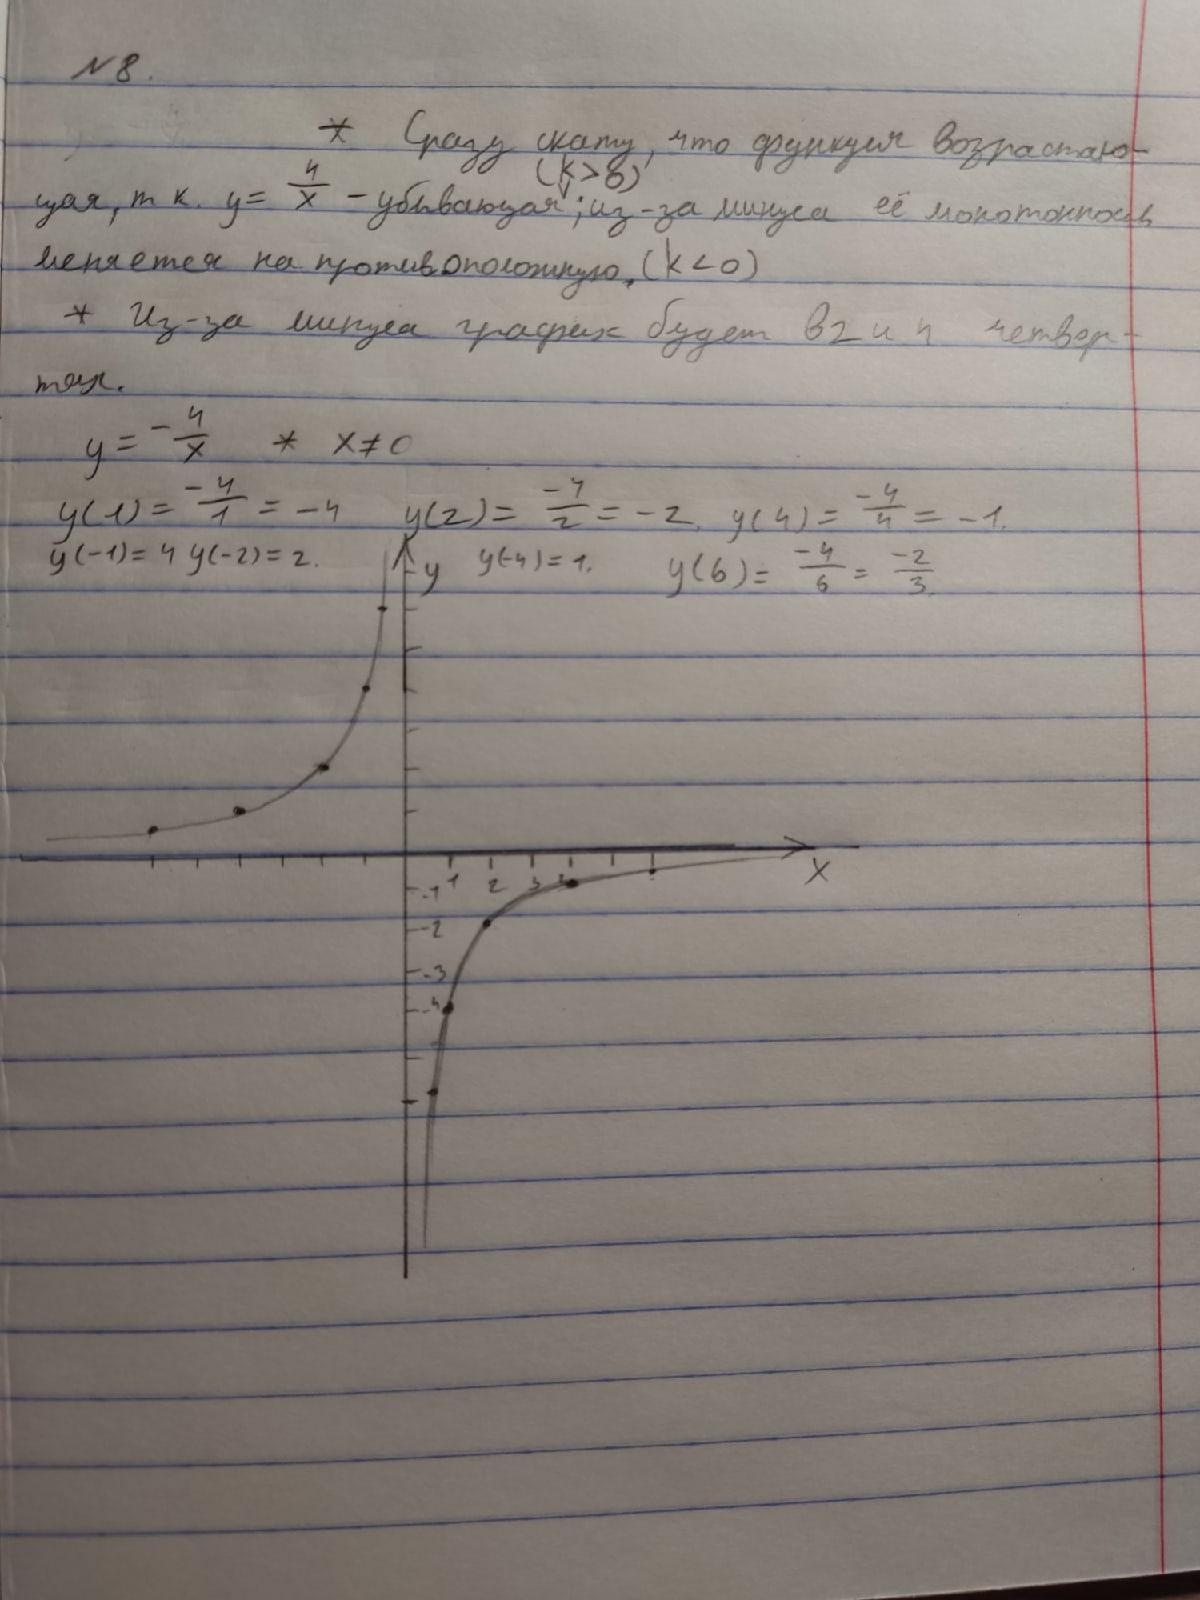 № 8.
* Сразу скажу, что функция возрастаю-
(k>0)
щая, т к. y = 4/x - убывающая; из-за минуса её монотонность
меняется на противоположную. (k<0)
* Из-за минуса график будет в 2 и 4 четвер-
тях.
y = -4/x * x≠0
y(1) = -4/1 = -4 y(2) = -4/2 = -2. y(4) = -4/4 = -1.
y(-1)=4 y(-2)=2. y(-4)=1. y(6) = -4/6 = -2/3.
y
x
1 2 3 4
-1
-2
-3
-4